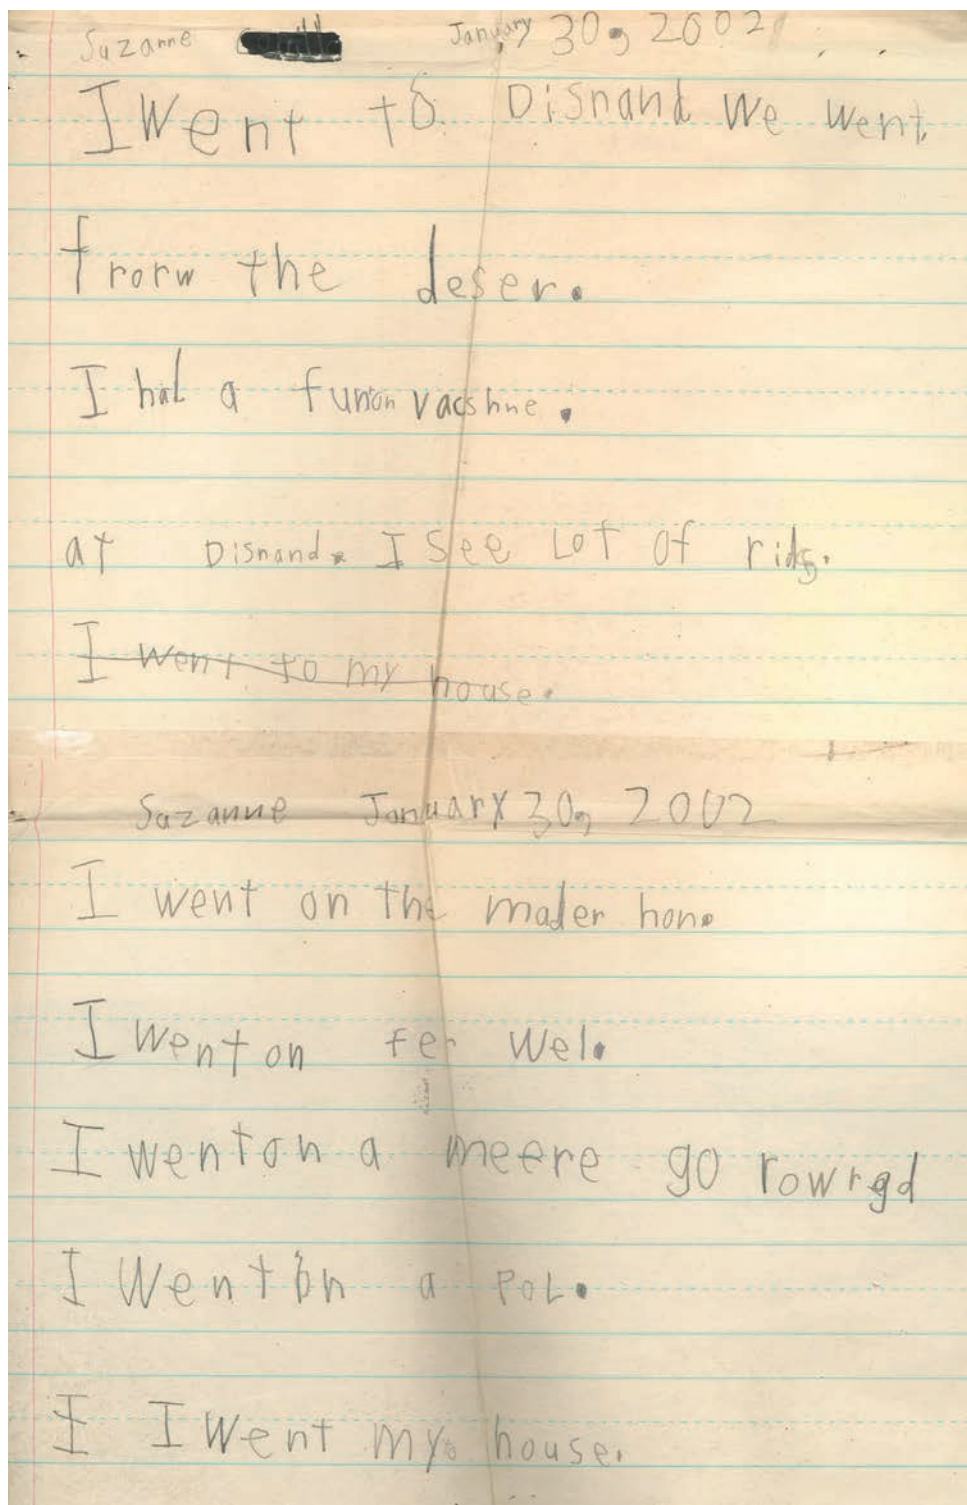 Suzanne January 30, 2002
I Went to Disnand We went
frorw the deser.
I had a funon vacshne.
at Disnand. I see Lot of rids.
I went to my house.
Suzanne January 30, 2002
I went on the mader hon.
I Went on fer wel.
I went on a meere go rowrgd
I Went on a POL.
I I Went my house.